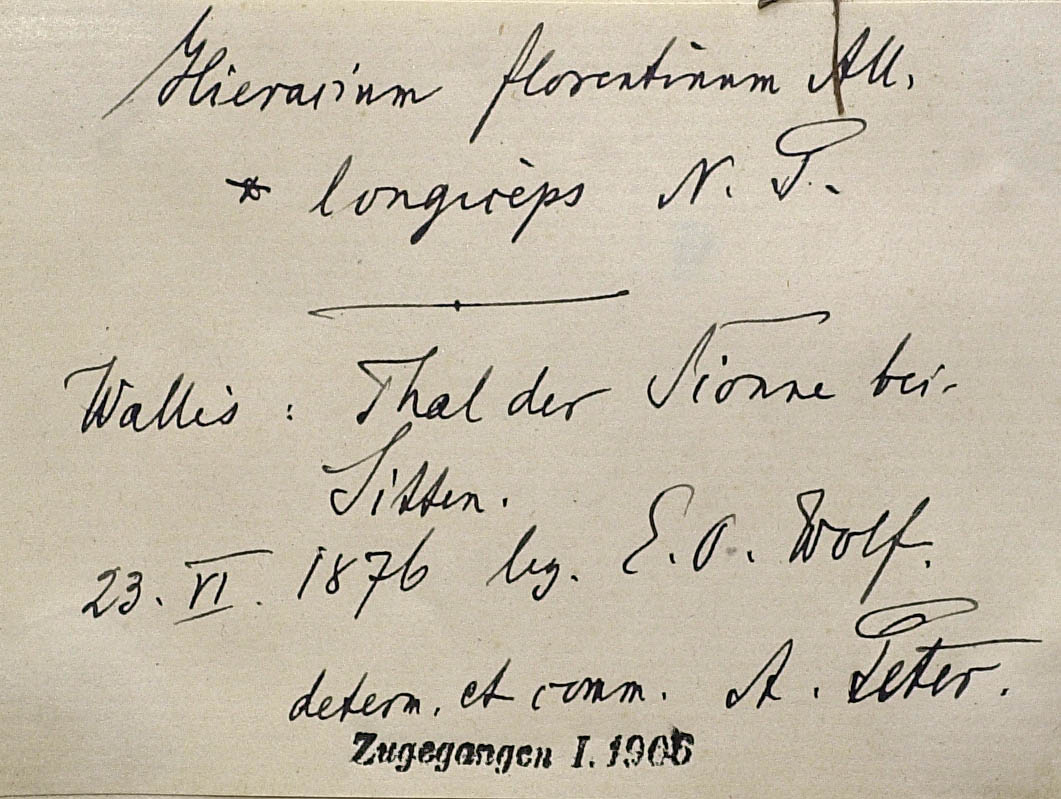 Hieracium florentinum All.
* longiceps N. P.
Wallis : Thal der Sionne bei
Sitten.
23. VI. 1876 leg. E. O. Wolf.
determ. et comm. A. Peter.
Zugegangen I. 1906